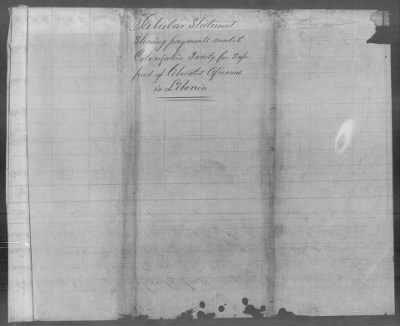 Tabular Statement
Showing payments made to
Colonization Society for Sup-
port of Liberated Africans
in Liberia